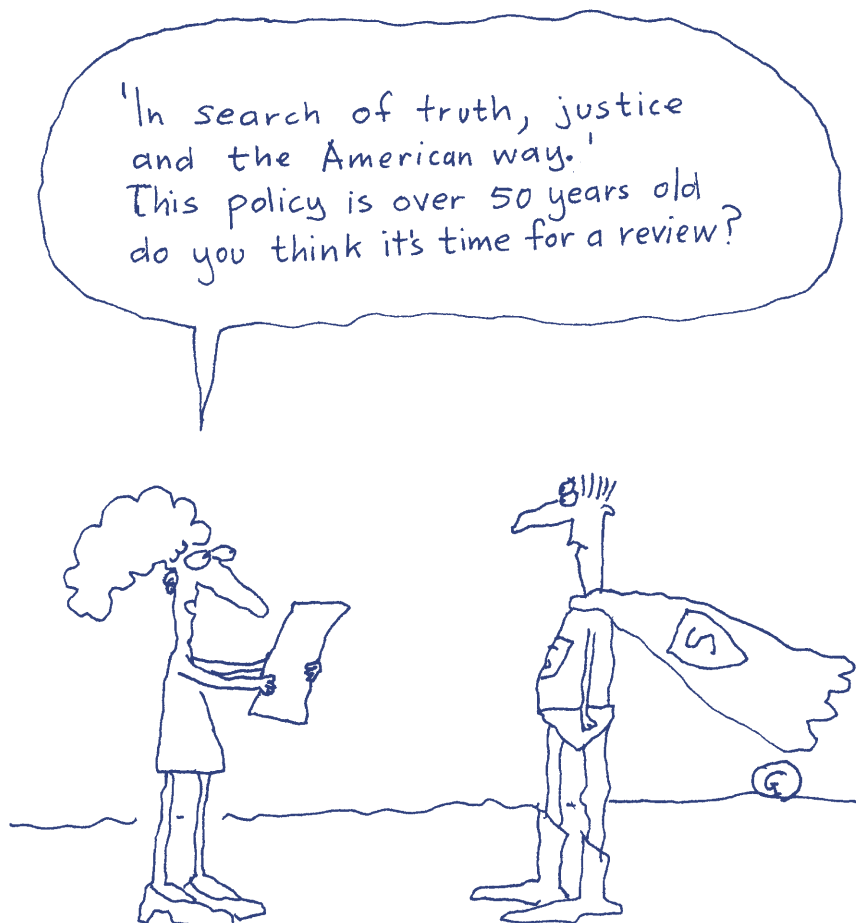 'In search of truth, justice
and the American way.'
This policy is over 50 years old
do you think it's time for a review?
S
S
G